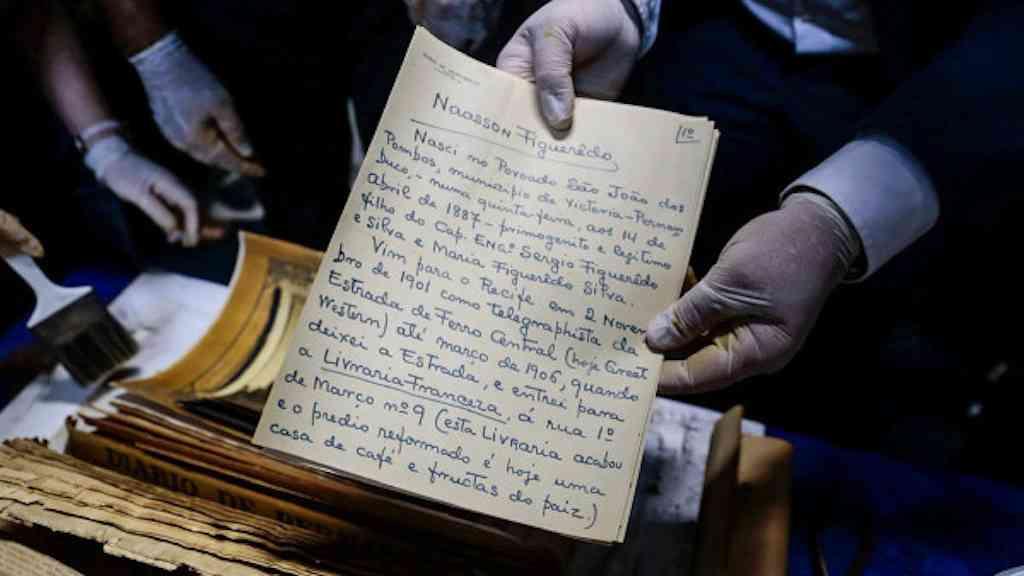 1º
Naasson Figuerêdo
Nasci no Povoado São João dos
Pombos, município de Victoria-Pernam
buco,- numa quinta-feira, aos 14 de
abril de 1887- primogenito e legitimo
filho do Cap. Engº Sergio Figuerêdo
e Silva e Maria Figuerêdo Silva.
Vim para o Recife em 2 Novem
bro de 1901 como telegraphista da
Estrada de Ferro Central (hoje Great
Western) até março da 1906, quando
deixei a Estrada, e entrei para
a Livraria-Franceza, á rua 1º
de Março nº 9 (esta Livraria acabou
e o predio reformado é hoje uma
casa de café e fructas do paiz.)
DIARIO DE PER